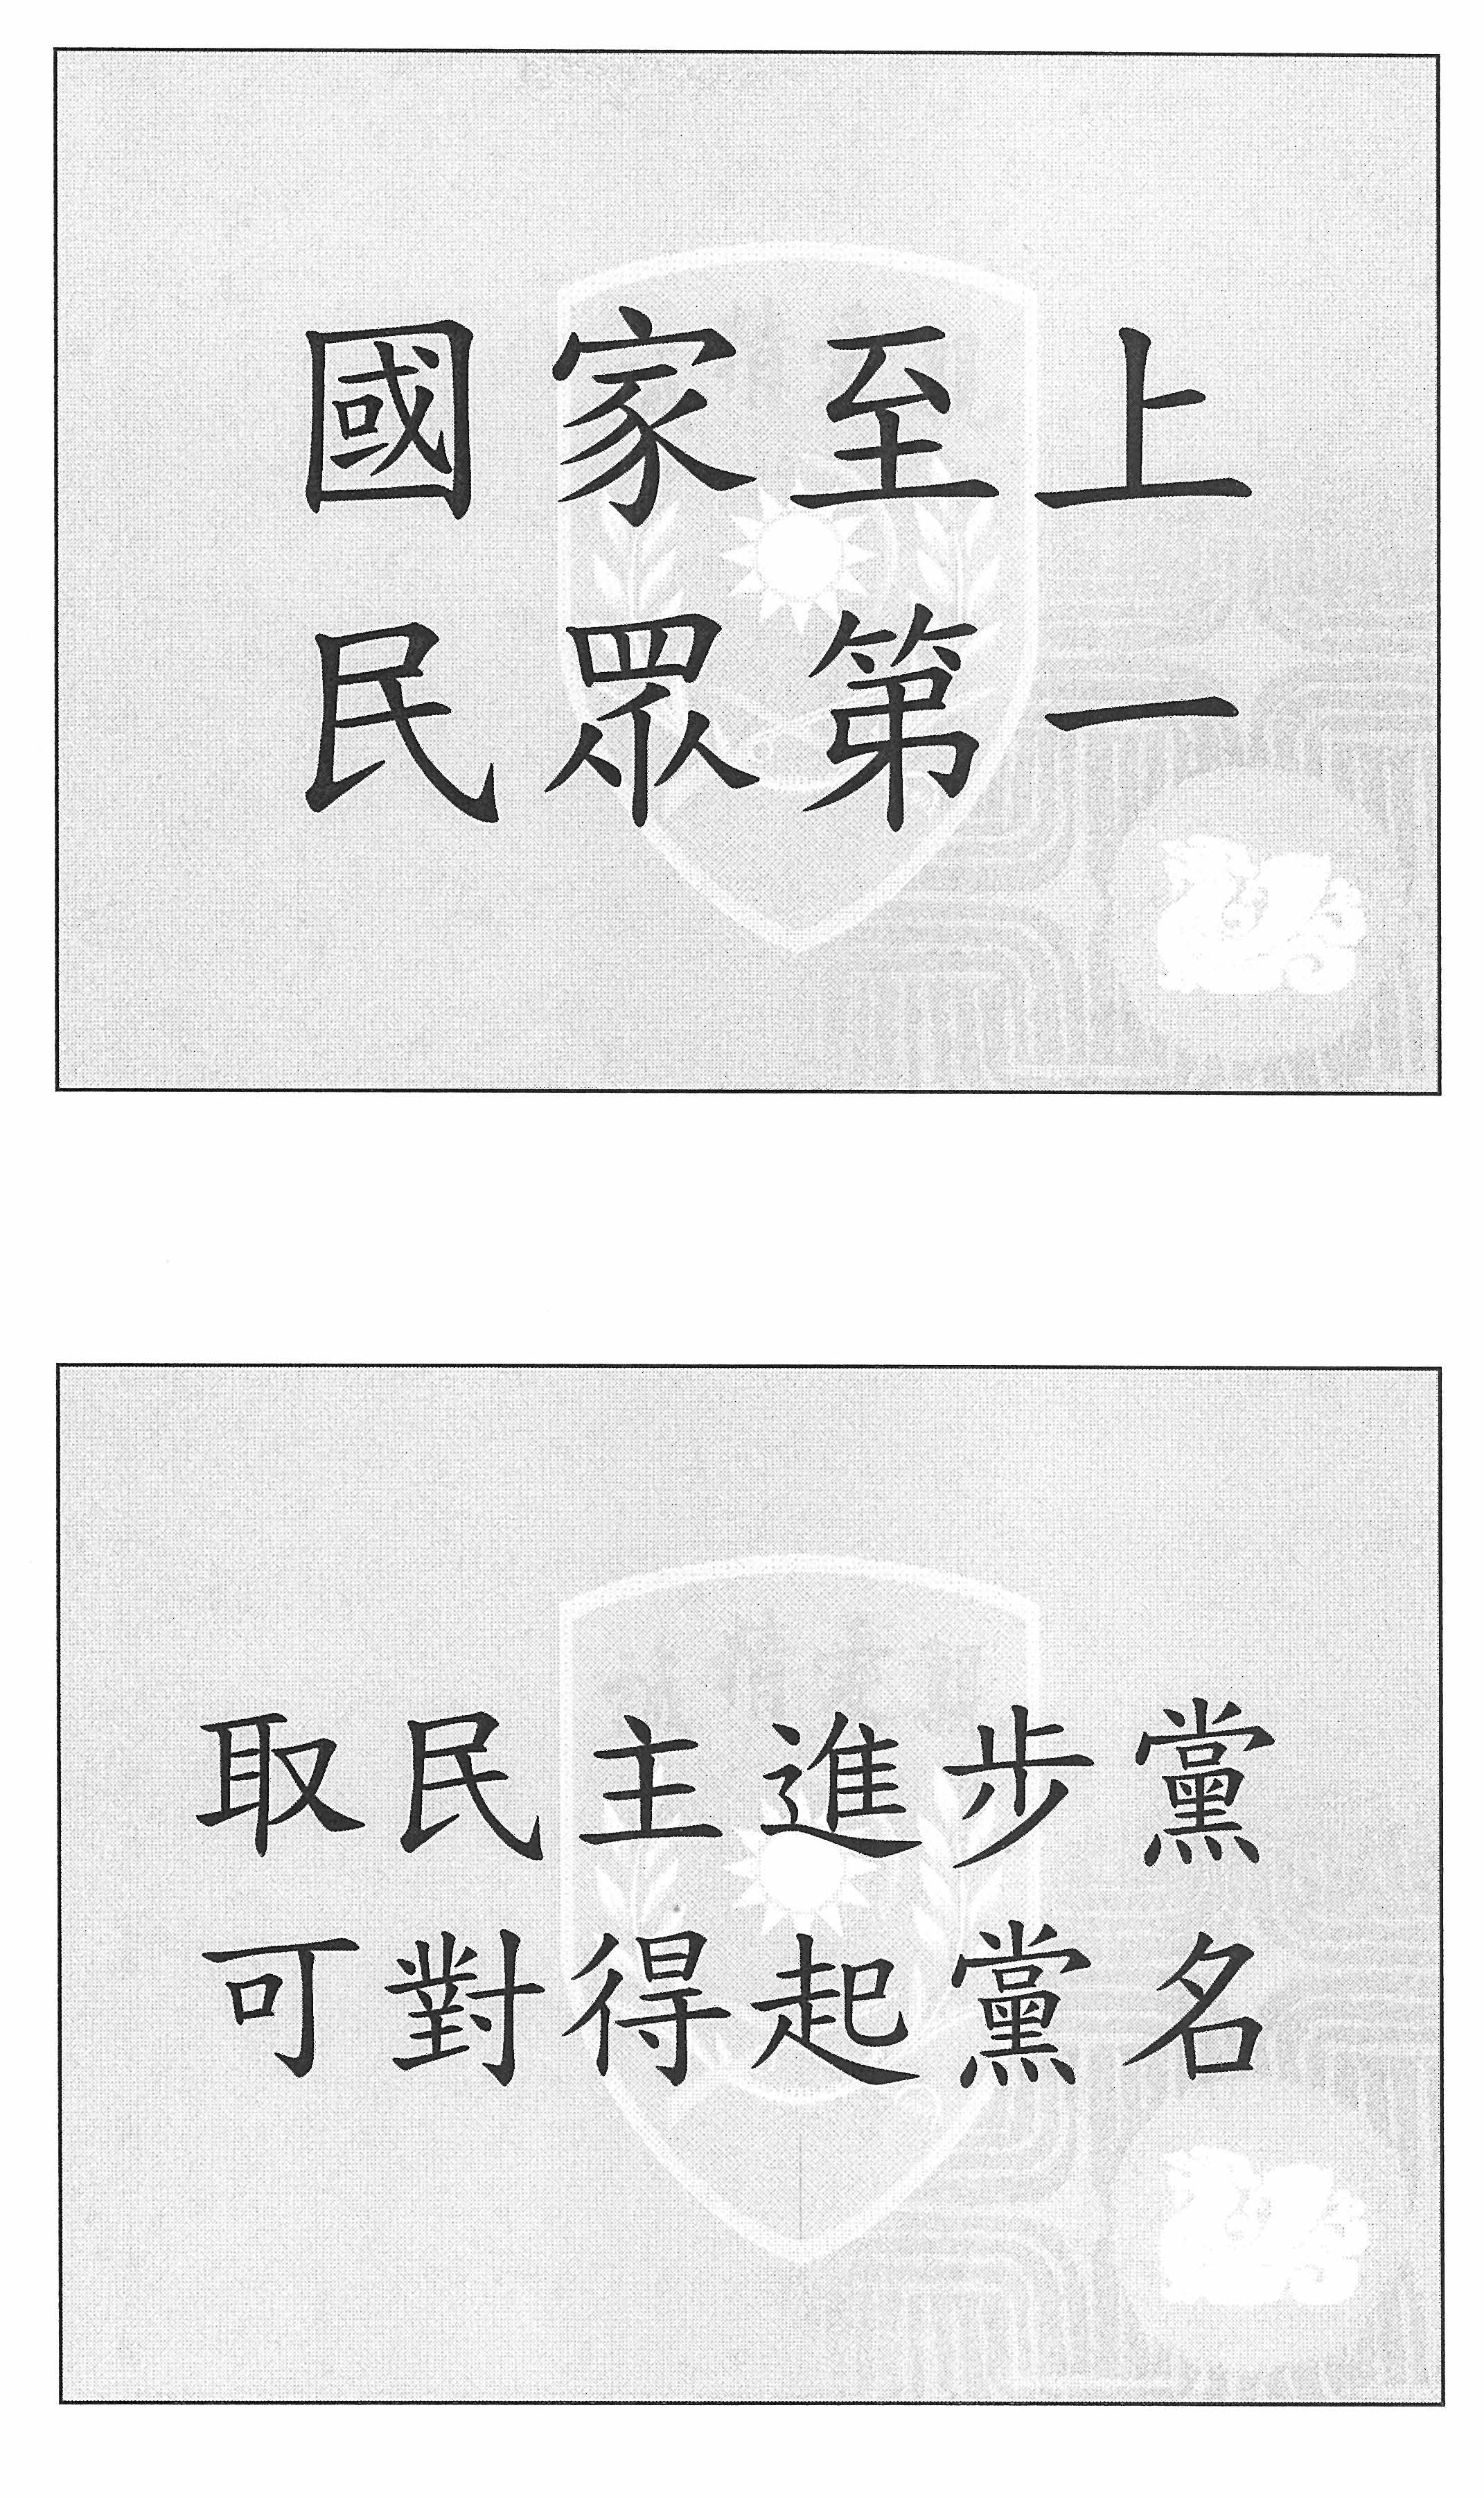 國家至上
民眾第一
取民主進步黨
可對得起黨名